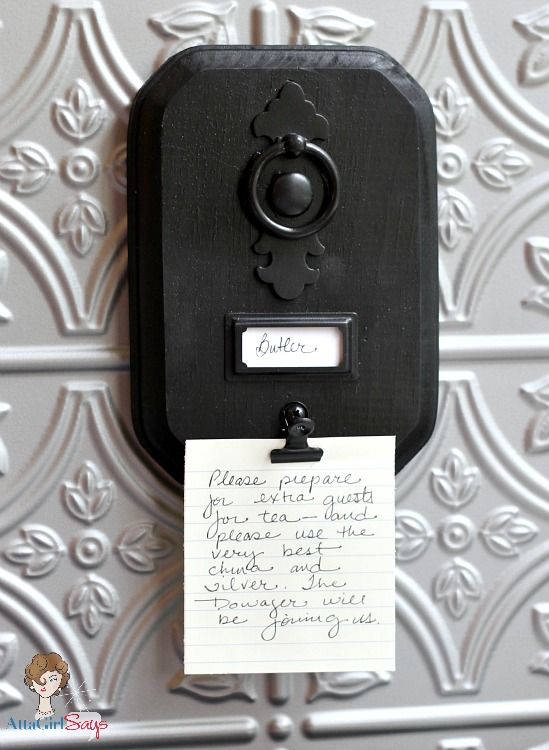 Butler
Please prepare
for extra guests
for tea — and
please use the
very best
china and
silver. The
Dowager will
be joining us.
AttaGirlSays